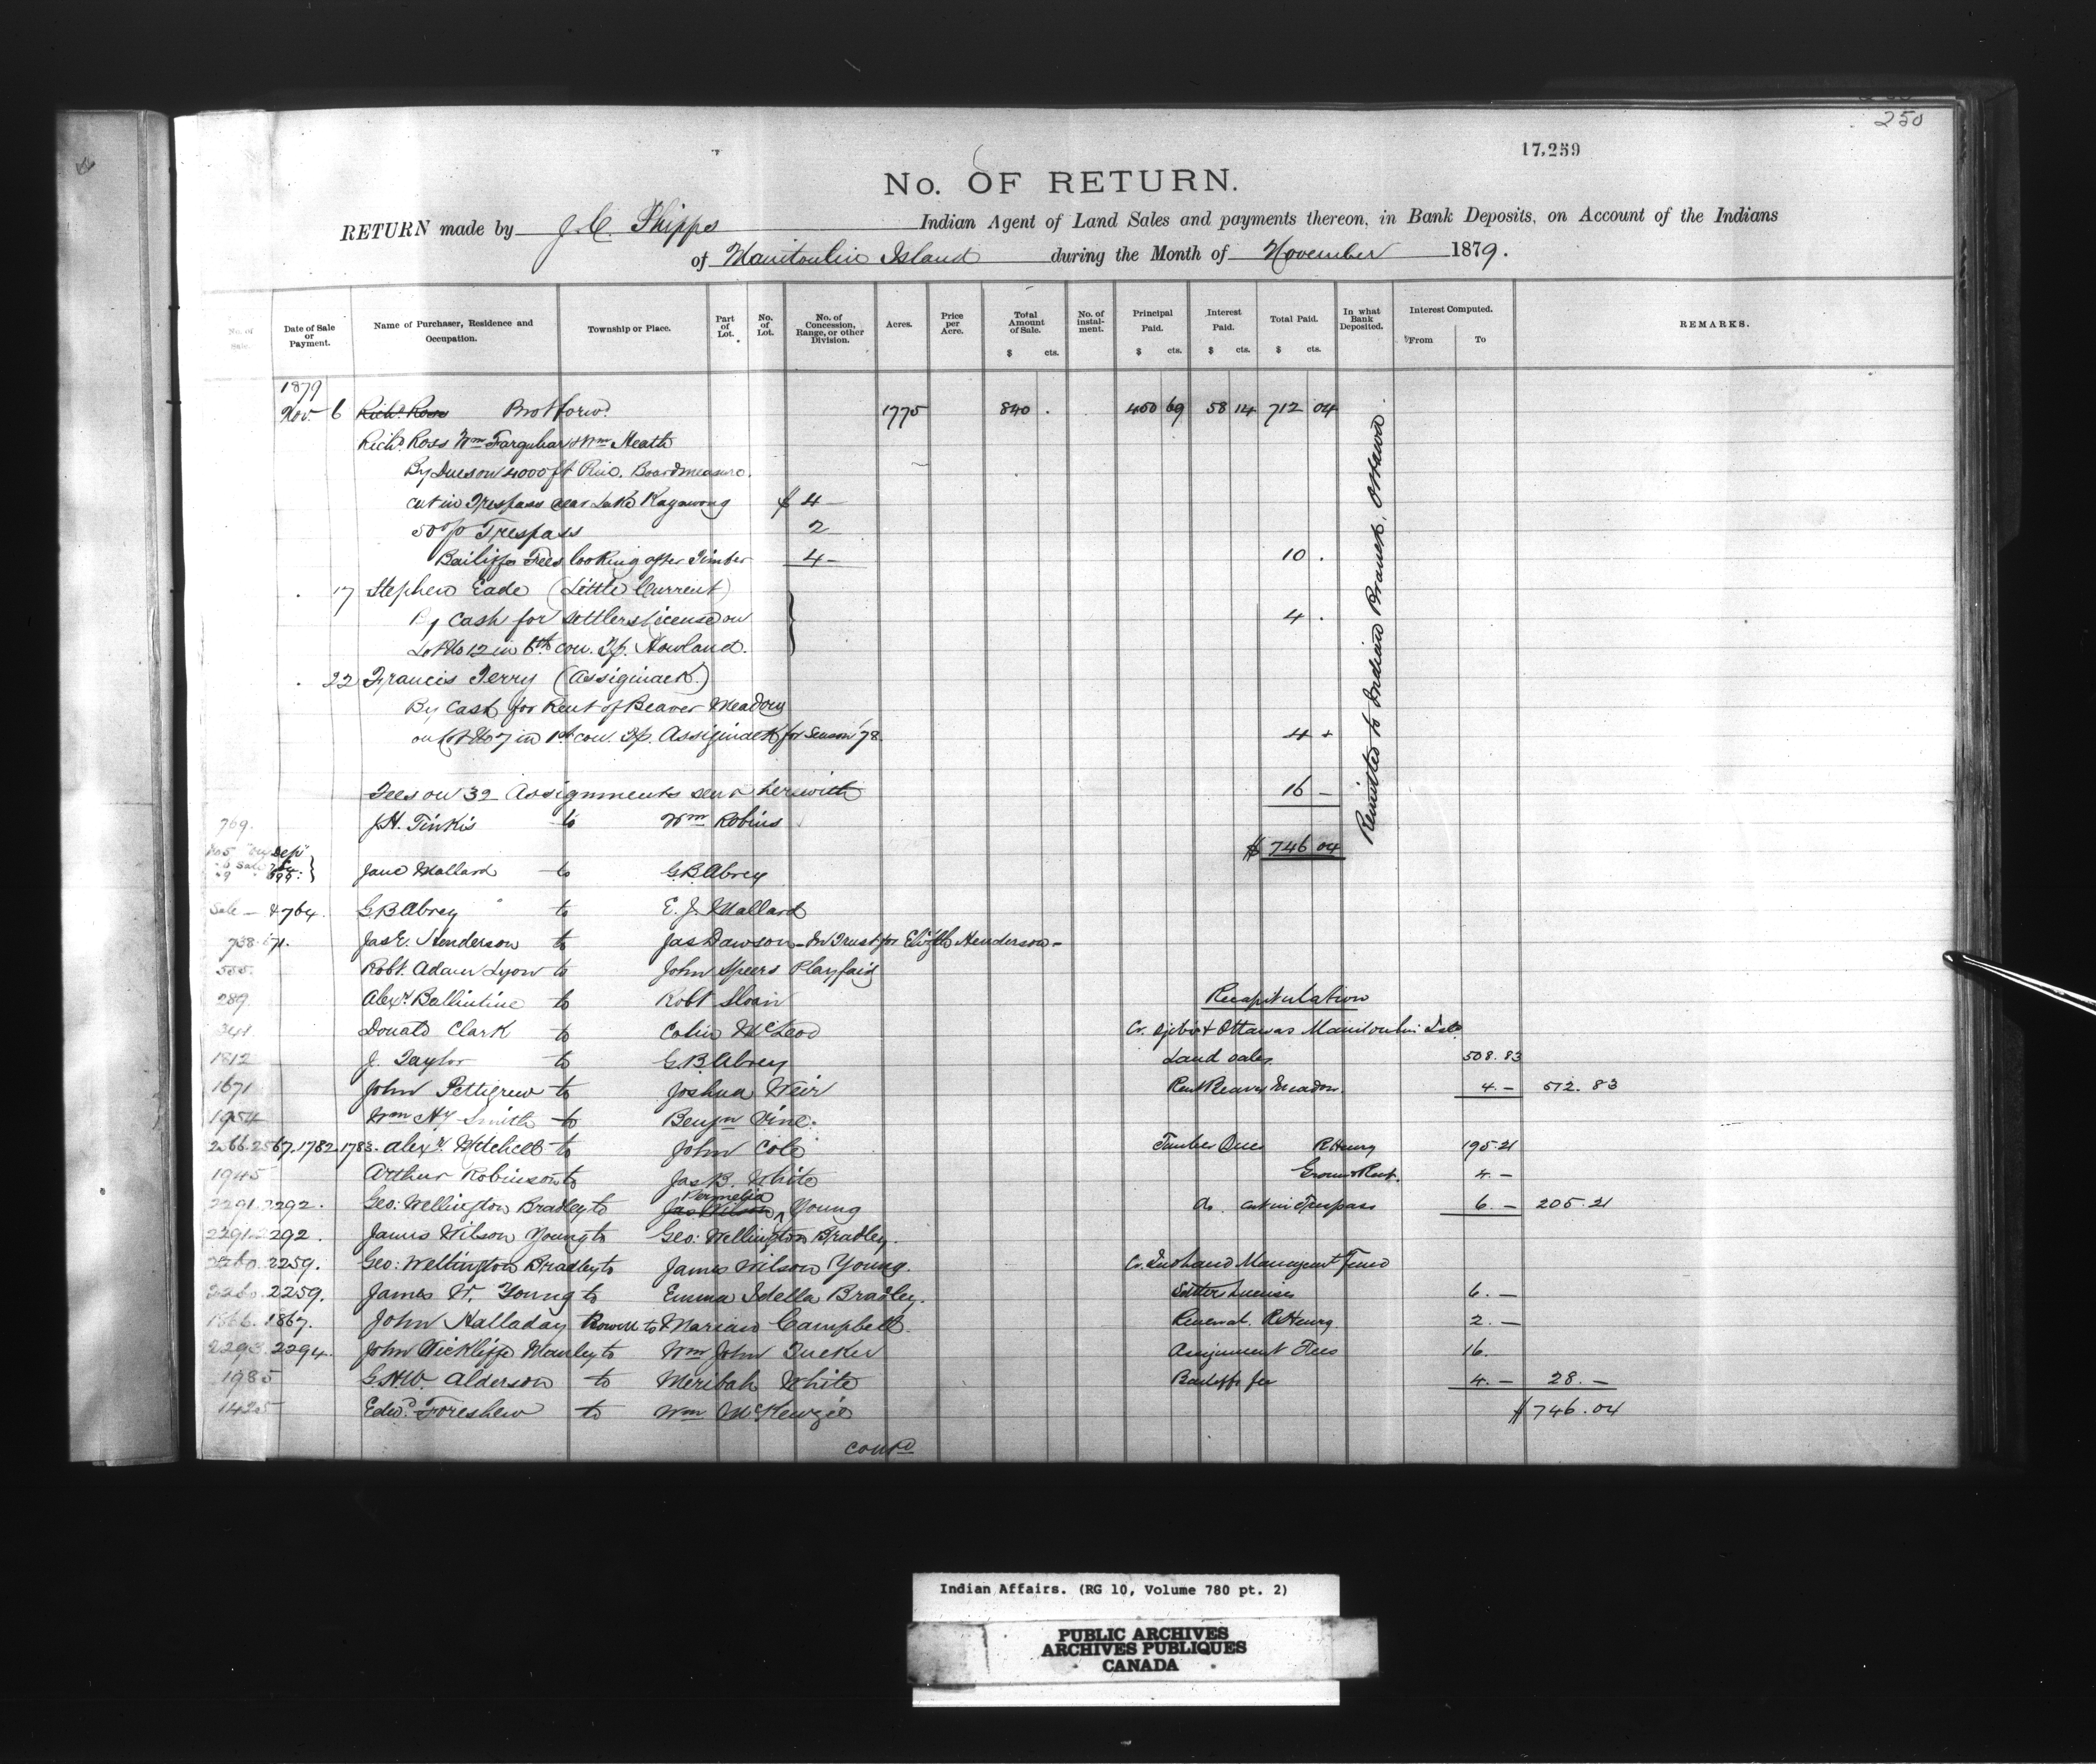 250
17,259
No. OF RETURN.
RETURN made by J. C. Phipps Indian Agent of Land Sales and payments thereon, in Bank Deposits, on Account of the Indians
of Manitoulin Island during the Month of November 1879.
No. of Sale. Date of Sale or Payment. Name of Purchaser, Residence and Occupation. Township or Place. Part of Lot. No. of Lot. No. of Concession, Range, or other Division. Acres. Price per Acre. Total Amount of Sale. $ cts. No. of instalment. Principal Paid. $ cts. Interest Paid. $ cts. Total Paid. $ cts. In what Bank Deposited. Interest Computed. From To REMARKS.
1879
Nov 6 Richd. Ross Brot forwd. 1775 840 . 450 69 58 14 712 04
Richd Ross Wm Farquhar & Wm Heath
By Dues on 4000 ft Pine, Board measure.
cut in Trespass near Lake Kagawong $ 4 -
50 % Trespass 2
Bailiffs Fees looking after Timber 4 - 10 .
17 Stephen Eade (Little Current)
By Cash for settlers license on 4 .
Lot No 12 in 6th con. Tp. Howland.
22 Francis Terry (Assiginack.)
By Cash for Rent of Beaver Meadow
on Lot No 7 in 1st con. Tp. Assiginack for Season '78 4
Remitted to Indian Branch, Ottawa
Fees on 32 Assignments sent herewith 16 -
769. J.H. Tinkis to Wm Robins
$ 746 04
Jane Mallard to G.B. Abrey
Sale - 4764. G B Abrey to E. J. Mallard
738. Jas E. Henderson to Jas Dawson - In Trust for Elizth Henderson -
555. Robt. Adam Lyon to John Speers Playfair
289. Alexr Ballintine to Robt Sloan Recapitulation
241. Donald Clark to Colin McLeod Cr. Ojibw & Ottawas Manitoulin Isld
1812 J. Taylor to G. B. Abrey Land sales 508.83
1671 John Pettigrew to Joshua Weir Rent Beaver Meadow. 4.- 512.83
1954 Wm Hy Smith to Benjn Vine.
2566.2567.1782.1783. Alexr. Mitchell to John Cole Timber Dues R Henry 195.21
1945 Arthur Robinson to Jas B. White Ground Rent. 4.-
2291.2292. Geo: Wellington Bradley to Jas Wilson Permelia Young Do. cut in Trespass 6.- 205.21
2291.2292. James Wilson Young to Geo: Wellington Bradley.
2260.2259. Geo: Wellington Bradley to James Wilson Young. Cr. Ind Land Managemt Fund
2260.2259. James W. Young to Emma Idella Bradley. Settlers Licenses 6.-
1866.1867. John Halladay Rowell to Marian Campbell Renewal. R Henry 2.-
2293.2294. John Wickliffe Mowley to Wm John Tucker Assignment Fees 16.
1985 G.H.W. Alderson to Meribah White Bailiffs fee 4.- 28.-
1425 Edwd. Foreshew to Wm McKenzie $ 746.04
contd
Indian Affairs. (RG 10, Volume 780 pt. 2)
PUBLIC ARCHIVES
ARCHIVES PUBLIQUES
CANADA